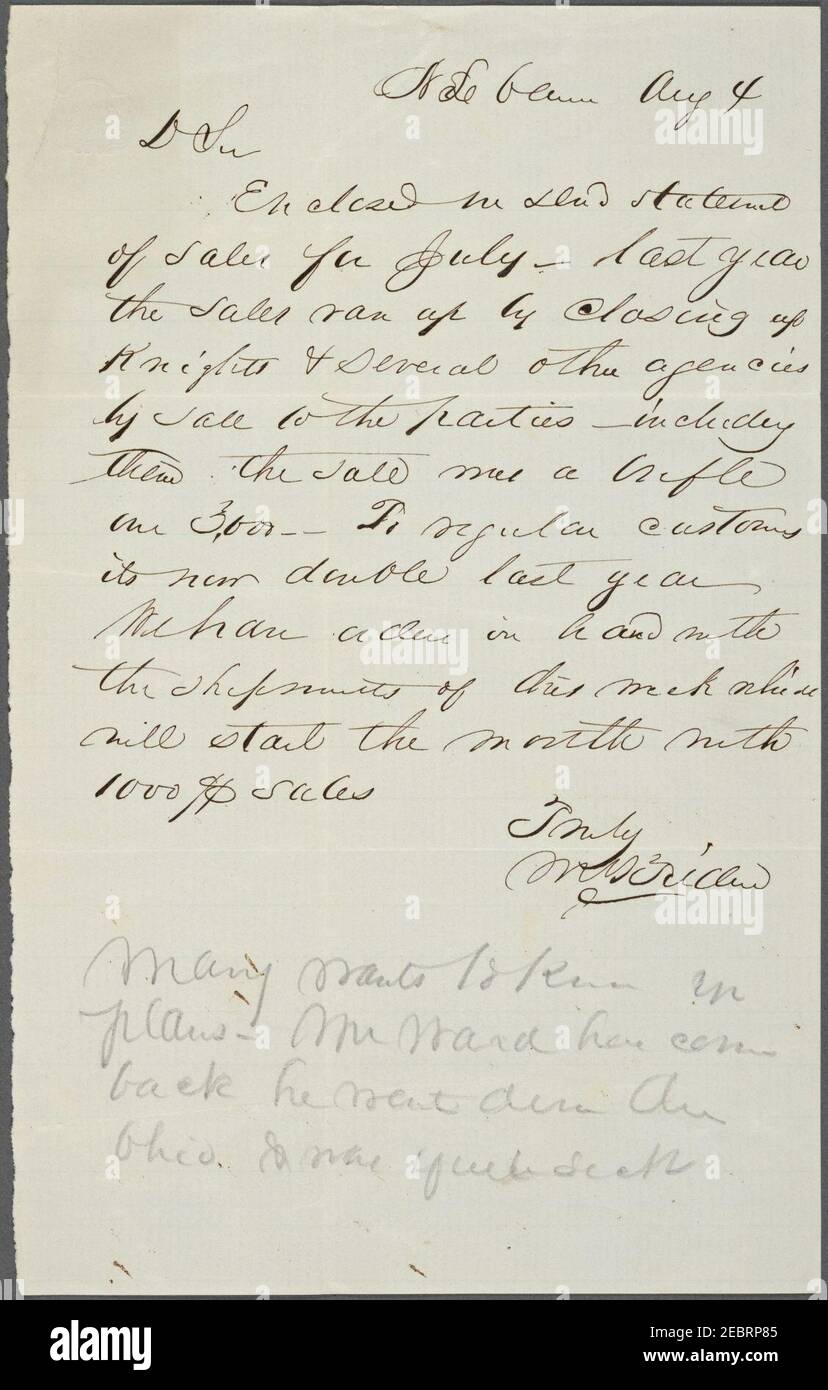 Aug 4
D Sir
Enclosed we send statement
of sales for July – last year
the sales ran up by closing up
Knights & several other agencies
by sale to the parties – including
them the sale was a trifle
over 3,000 – To regular customers
its now double last year
We have orders in hand with
the shipments of this week which
will start the month with
1000 $ sales
Truly
Many wants to know yr
plans – Mr Ward has come
back he went down the
Ohio & was quite sick
alamy
Image ID: 2EBRP85
www.alamy.com